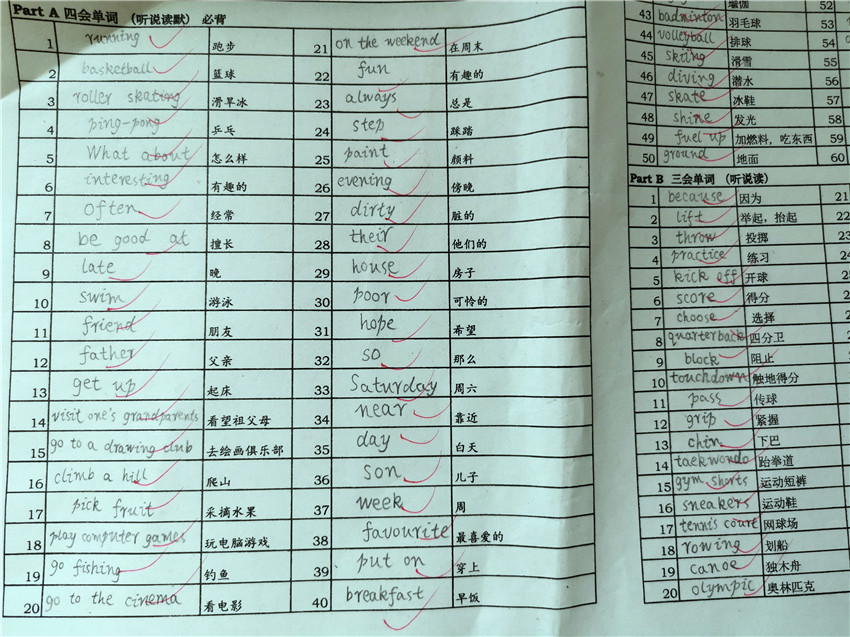 Part A 四会单词 (听说读默) 必背
1 running 跑步 21 on the weekend 在周末
2 basketball 篮球 22 fun 有趣的
3 roller skating 滑旱冰 23 always 总是
4 ping-pong 乒乓 24 step 踩踏
5 What about 怎么样 25 paint 颜料
6 interesting 有趣的 26 evening 傍晚
7 often 经常 27 dirty 脏的
8 be good at 擅长 28 their 他们的
9 late 晚 29 house 房子
10 swim 游泳 30 poor 可怜的
11 friend 朋友 31 hope 希望
12 father 父亲 32 so 那么
13 get up 起床 33 Saturday 周六
14 visit one's grandparents 看望祖父母 34 near 靠近
15 go to a drawing club 去绘画俱乐部 35 day 白天
16 climb a hill 爬山 36 son 儿子
17 pick fruit 采摘水果 37 week 周
18 play computer games 玩电脑游戏 38 favourite 最喜爱的
19 go fishing 钓鱼 39 put on 穿上
20 go to the cinema 看电影 40 breakfast 早饭
瑜伽 52
43 badminton 羽毛球 53
44 volleyball 排球 54
45 skiing 滑雪 55
46 diving 潜水 56
47 skate 冰鞋 57
48 shine 发光 58
49 fuel up 加燃料，吃东西 59
50 ground 地面 60
Part B 三会单词 (听说读)
1 because 因为 21
2 lift 举起，抬起 22
3 throw 投掷 23
4 practice 练习 24
5 kick off 开球
6 score 得分
7 choose 选择
8 quarterback 四分卫
9 block 阻止
10 touchdown 触地得分
11 pass 传球
12 grip 紧握
13 chin 下巴
14 taekwondo 跆拳道
15 gym shorts 运动短裤
16 sneakers 运动鞋
17 tennis court 网球场
18 rowing 划船
19 canoe 独木舟
20 olympic 奥林匹克